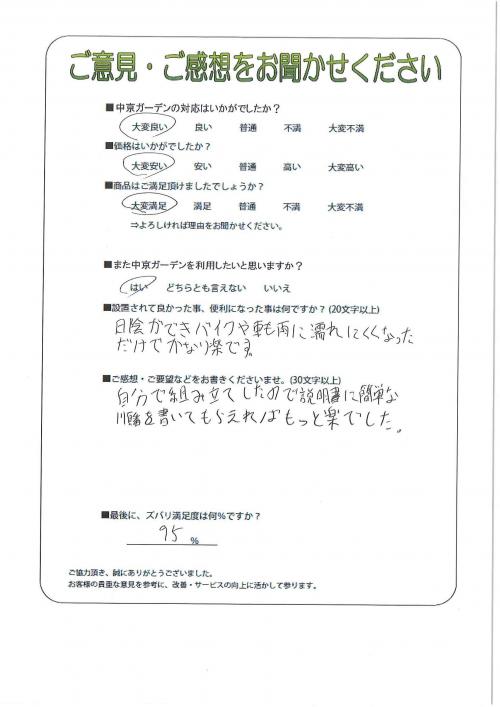 ご意見・ご感想をお聞かせください
■中京ガーデンの対応はいかがでしたか？
大変良い 良い 普通 不満 大変不満
■価格はいかがでしたか？
大変安い 安い 普通 高い 大変高い
■商品はご満足頂けましたでしょうか？
大変満足 満足 普通 不満 大変不満
⇒よろしければ理由をお聞かせください。
■また中京ガーデンを利用したいと思いますか？
はい どちらとも言えない いいえ
■設置されて良かった事、便利になった事は何ですか？(20文字以上)
日陰ができバイクや車も雨に濡れにくくなった
だけでかなり楽です。
■ご感想・ご要望などをお書きくださいませ。(30文字以上)
自分で組み立てしたので説明書に簡単な
順番を書いてもらえればもっと楽でした。
■最後に、ズバリ満足度は何%ですか？
95 %
ご協力頂き、誠にありがとうございました。
お客様の貴重な意見を参考に、改善・サービスの向上に活かして参ります。